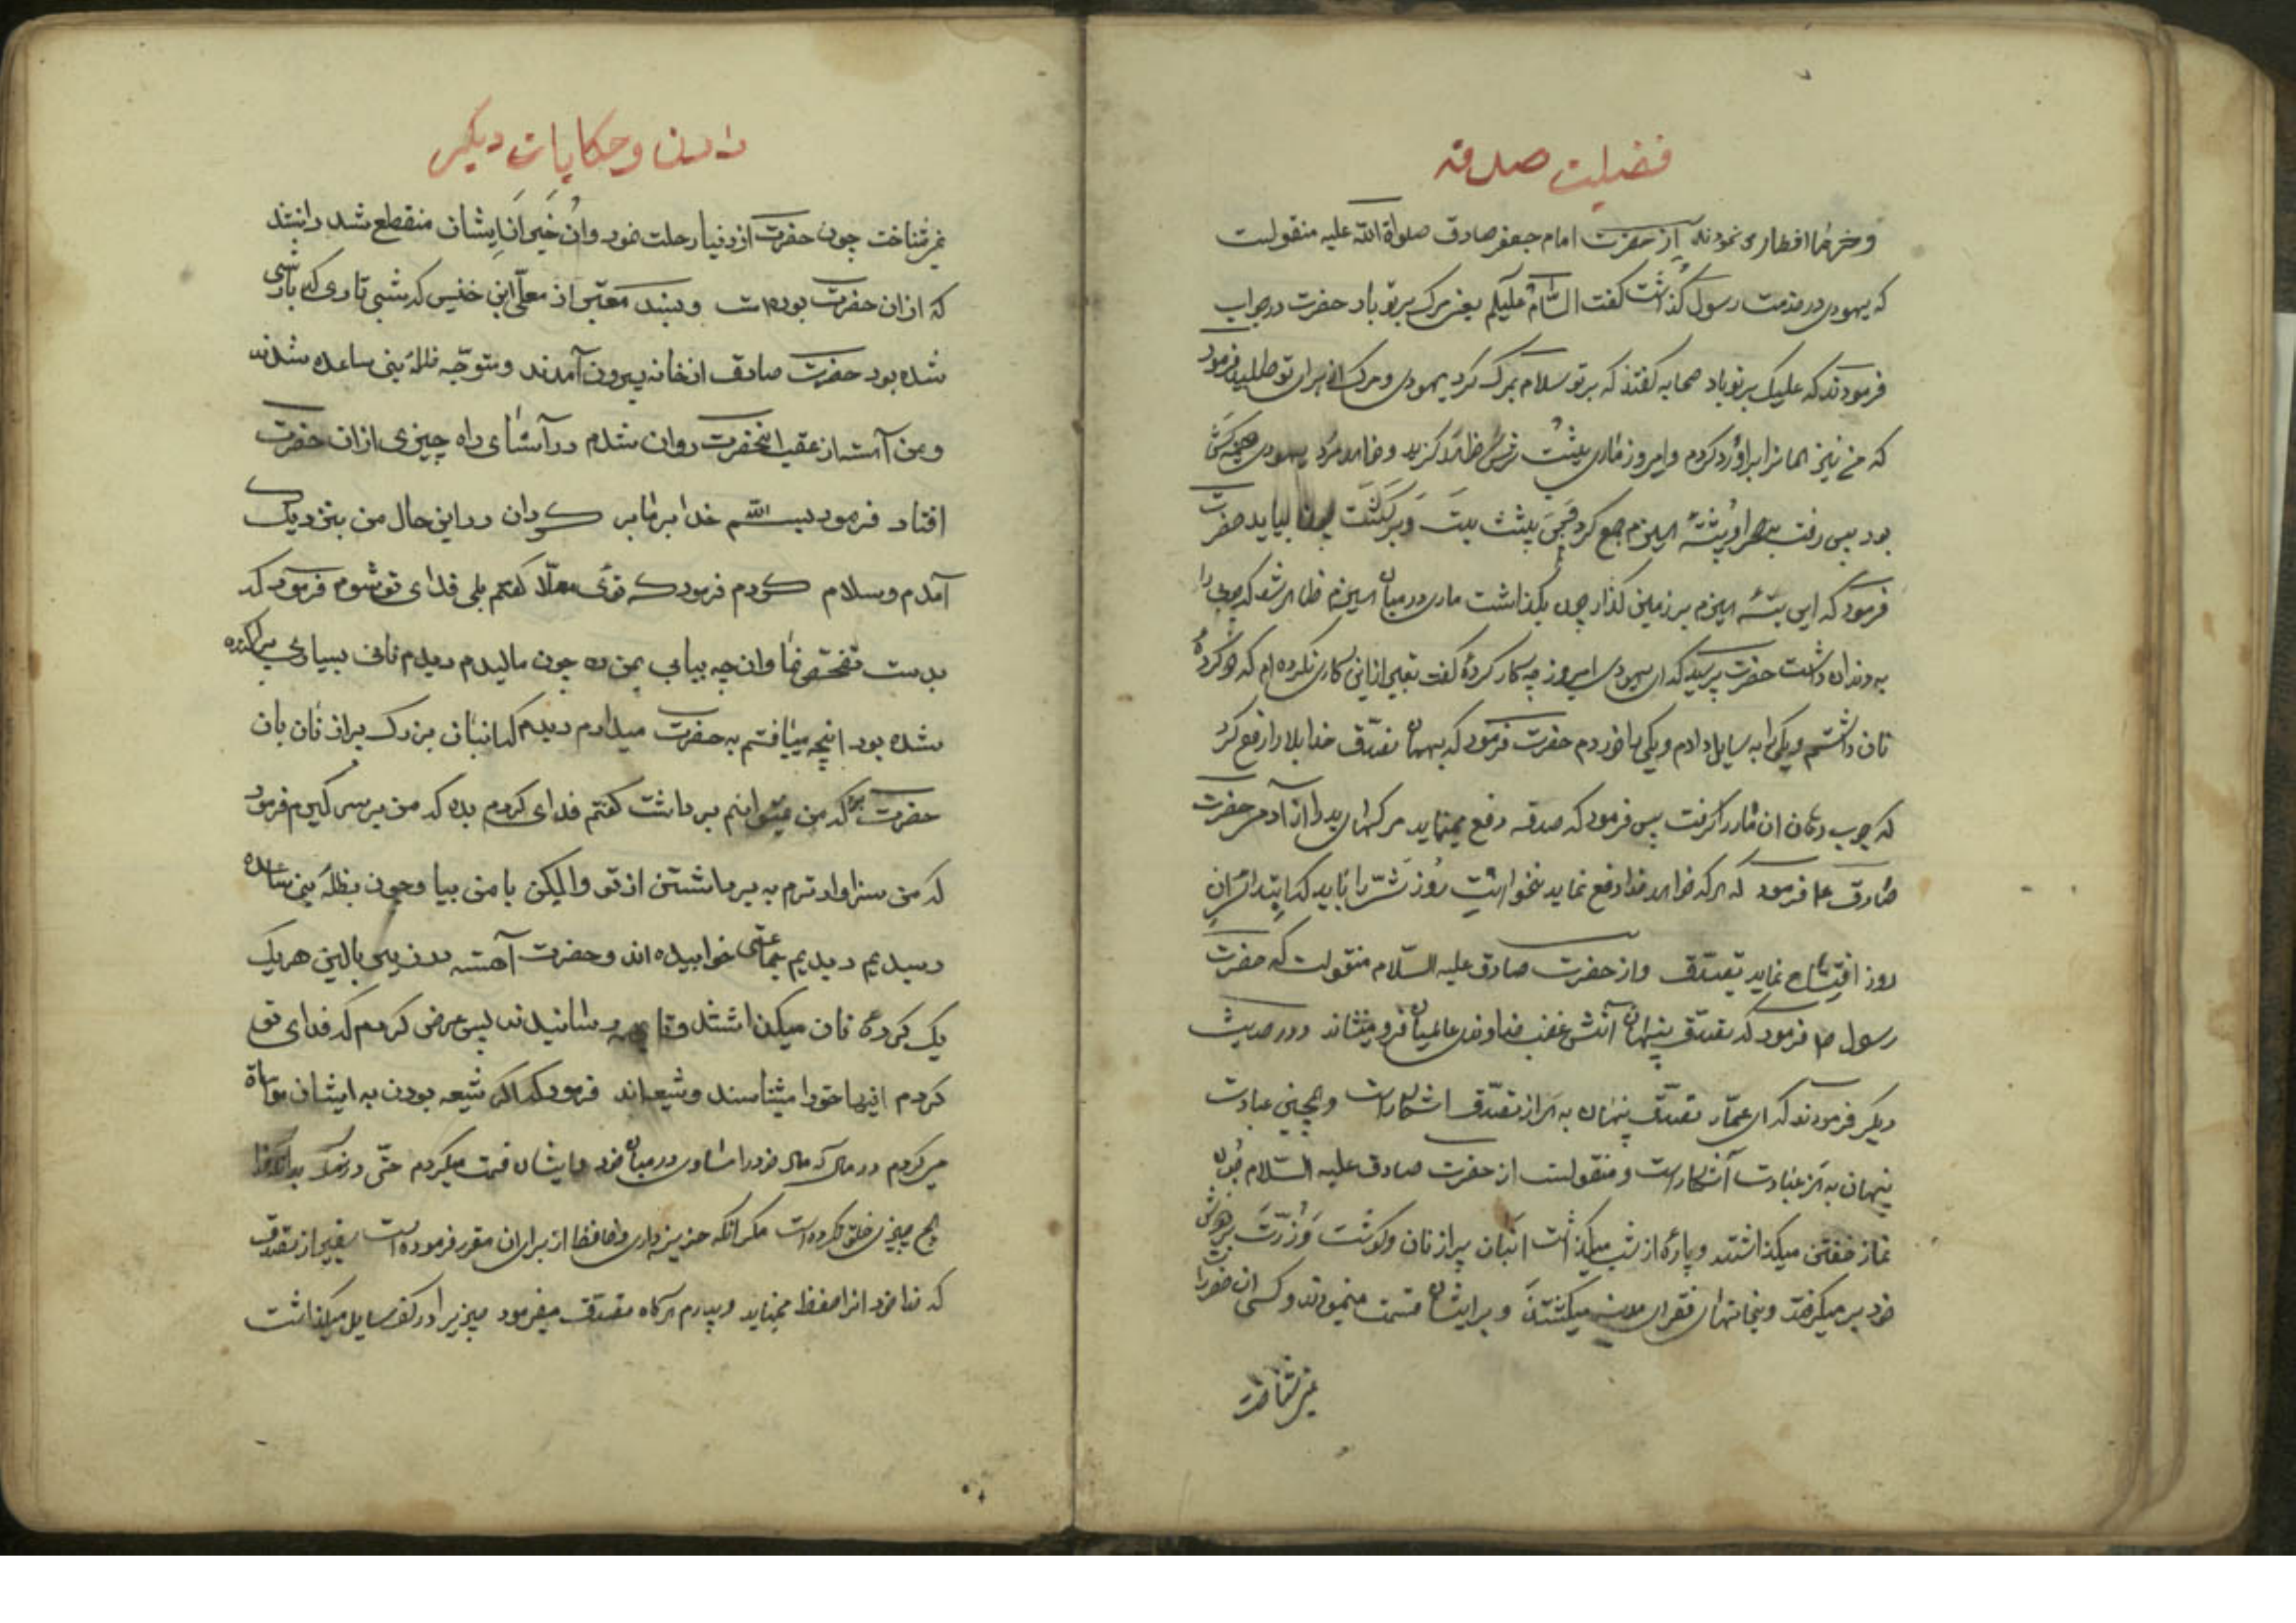 فضیلت صدقه
و خرما افطار می نمودند از حضرت امام جعفر صادق صلواة الله علیه منقولست
که یهودی در خدمت رسول گذاشت کفت السّام علیکم یعنی مرک بر تو باد حضرت در جواب
فرمودند که علیک بر تو باد صحابه کفتند که بر تو سلام بمرک کرد یهودی و مرک از برای تو طلبید فرمود
که من نیز همانرا براو رد کردم و امروز ماری پشت سرش را خواهد کزید و خواهد مرد یهودی هیمه کش
بود پس رفت به صحرا و پشتهٔ هیزم جمع کرد پشت بست و برکشت بیاید حضرت
فرمود که این پشتهٔ هیزم بر زمین کذار چون بکذاشت ماری در میان هیزم ظاهر شد که چوب را
به دندان داشت حضرت پرسید که ای یهودی امروز چه کار کردهٔ کفت بغیر از این کاری نکرده ام که دو کردهٔ
نان داشتم و یکی را به سایل دادم و یکی را خوردم حضرت فرمود که بهمان تصدّق خدا بلا را از تو رفع کرد
که چوب دهان ان مار را کرفت پس فرمود که صدقه دفع مینماید مرکهای بد را از آدمی حضرت
صادق ع فرمود که هر که خواهد خدا دفع نماید نحوست روز شرّ را باید که ابتدای ان
روز افتتاح نماید بتصدّق و از حضرت صادق علیه السّلام منقولست که حضرت
رسول ص فرمود که تصدّق پنهان آتش غضب خداوند عالمیان فرو مینشاند و در حدیث
دیکر فرمودند که ای عمّار تصدّق پنهان بهتر از تصدّق اشکار است و همچنین عبادت
پنهان بهتر از عبادت آشکار است و منقولست از حضرت صادق علیه السّلام چون
نماز خفتن میکذاشتند و پارهٔ از شب میکذشت انبان پر از نان و کوشت و زر بر دوش
خود بر میکرفت و بخانهای فقرای مدینه میکشتند و بر ایشان قسمت مینمودند و کسی ان حضرت را
نمی شناخت
دادن و حکایات دیکر
نمی شناخت چون حضرت از دنیا رحلت نمود و ان خیر از ایشان منقطع شد دانستند
که از ان حضرت بوده است و بسند معتبر از معلّی ابن خنیس که شبی تاری که بارشی
شده بود حضرت صادق از خانه بیرون آمدند و متوجّه ظلهٔ بنی ساعده شدند
و من آهسته از عقب انحضرت روان شدم در آثنای راه چیزی از ان حضرت
افتاد فرمود بسم الله خدا بر ما بر کردان در این حال من بنزدیک
آمدم و سلام کردم فرمود که توئی معلّا کفتم بلی فدای تو شوم فرمود که
بدست تفحّص نما و ان چه بیابی بمن ده چون مالیدم دیدم نانی بسیاری پراکنده
شده بود انچه مییافتم به حضرت میدادم دیدم که انبان بزرک پر از نان بان
حضرت بود که من نمیتوانم برداشت کفتم فدای کردم بده که من بر سر کیرم فرمود
که من سزاوار ترم به برداشتن از تو و الیکن با من بیا و چون بظلهٔ بنی ساعده
رسیدیم دیدیم جماعتی خوابیده اند و حضرت آهسته در زیر بالین هر یک
یک کردهٔ نان میکذاشتند و تا همه رسانیدند پس عرض کردم که فدای تو
کردم اینها حق را میشناسند و شیعه اند فرمود که اکر شیعه بودن به ایشان مواساة
می کردم در مال که مال خود را مساوی در میان خود و ایشان قسمت میکردم حتّی در نمک بدانکه خدا
هیچ چیزی خلق نکرده است مکر آنکه خزینه داری و حافظی از برای ان مقرر فرموده است بغیر از تصدّق
که خدا خود انرا حفظ مینماید و پدرم هرکاه تصدّق میفرمود چیزیرا در کف سایل میکذاشت